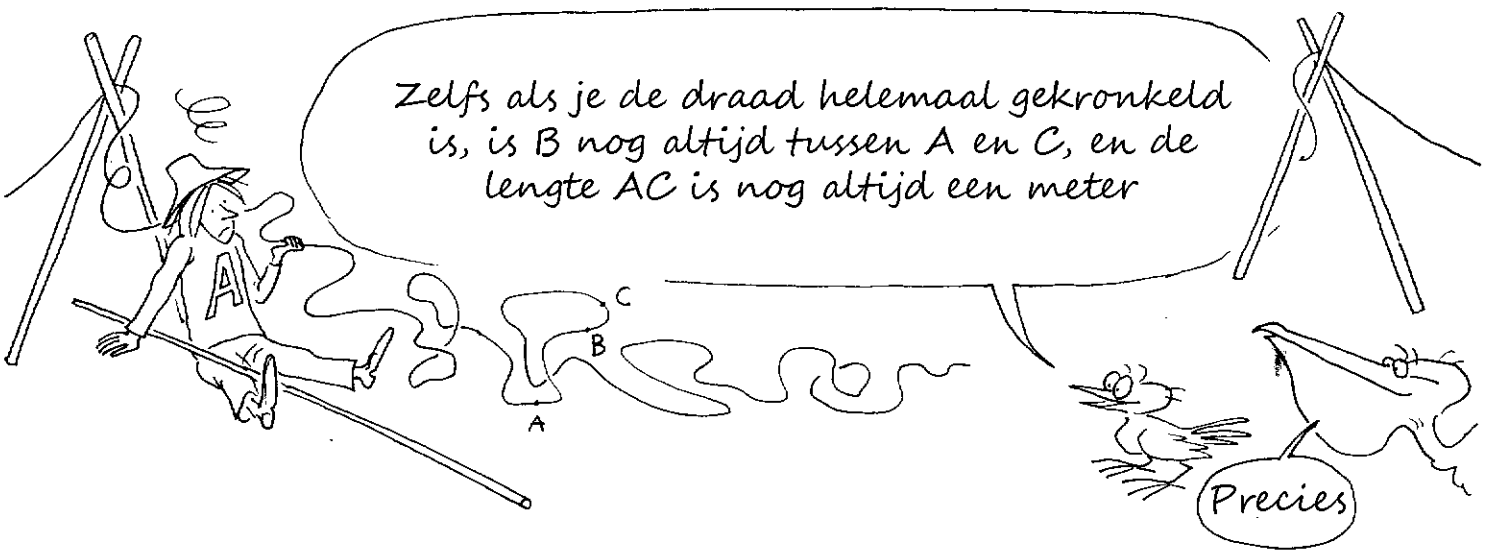 Zelfs als je de draad helemaal gekronkeld
is, is B nog altijd tussen A en C, en de
lengte AC is nog altijd een meter
A
C
B
A
Precies